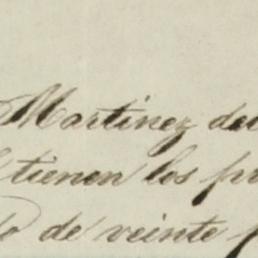 Martinez de
tienen los pr
o de veinte